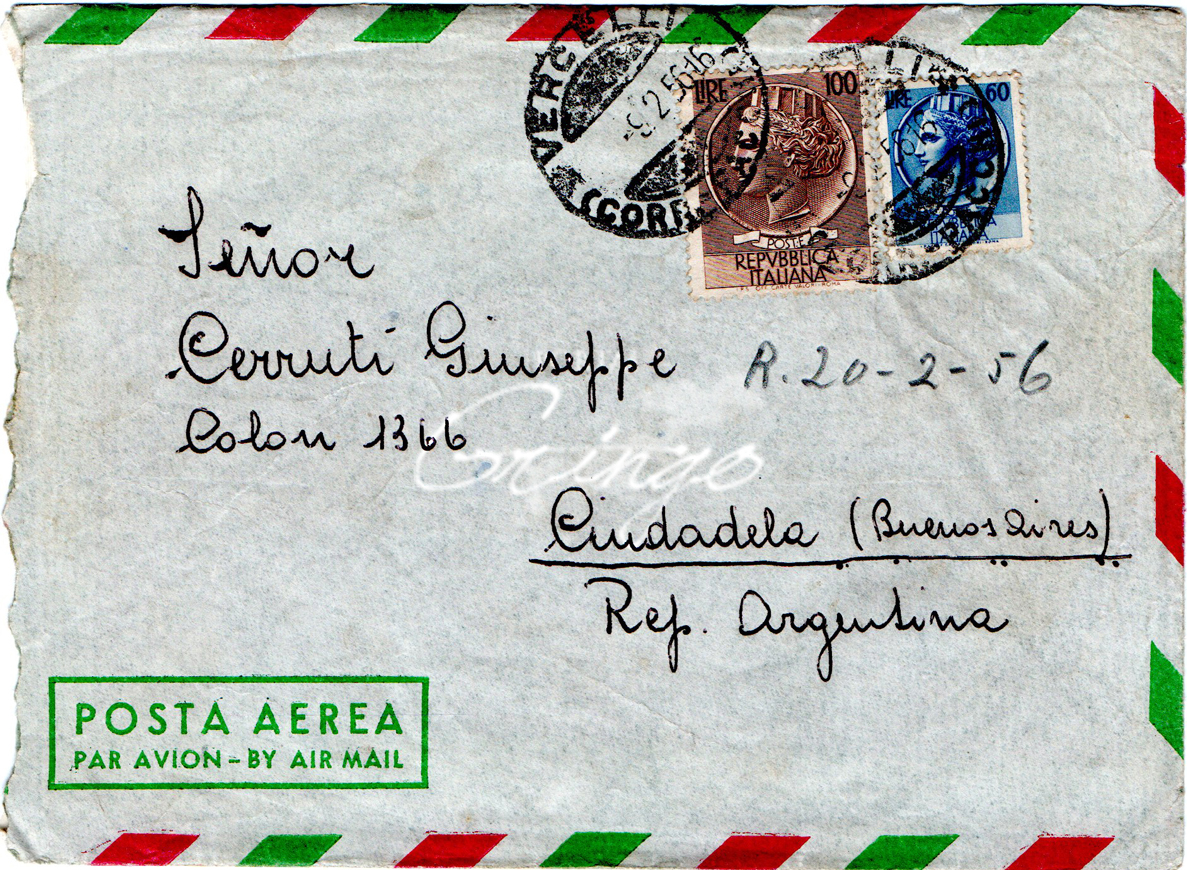 VERCELLI
-9.2.56.16
(CORR.
LIRE 100
LIRE 60
POSTE
REPVBBLICA
ITALIANA
I.P.S. OFF. CARTE VALORI-ROMA
ITALIANA
Señor
Cerruti Giuseppe
R. 20-2-56
Colon 1366
Gringo
Ciudadela (Buenos Aires)
Rep. Argentina
POSTA AEREA
PAR AVION - BY AIR MAIL